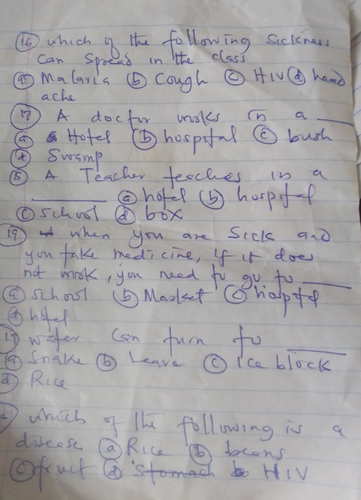 16 which of the following Sickness
can Spread in the class
a Malaria b Cough c HIV d head
ache
17 A doctor works in a ____
a Hotel b hospital c bush
d Swamp
A Teacher teaches in a
____ a hotel b hospital
c school d box
19 when you are Sick and
you take medicine, if it does
not work, you need to go to ____
a school b Market c hospital
d hotel
water can turn to ____
a Snake b Leave c Ice block
d Rice
which of the following is a
disease a Rice b beans
c fruit d Stomach HIV